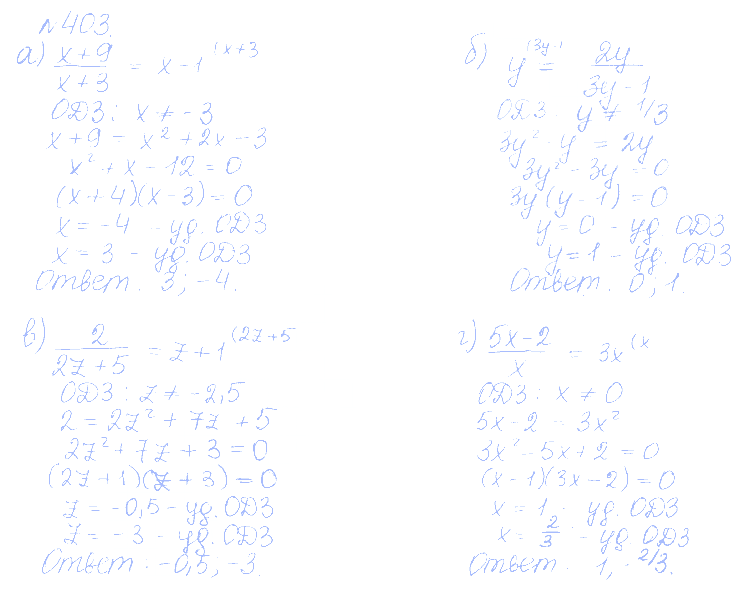 №403.
а) (x+9)/(x+3) = x-1 (x+3
ОДЗ: x ≠ -3
x+9 = x² + 2x - 3
x² + x - 12 = 0
(x+4)(x-3) = 0
x = -4 - уд. ОДЗ
x = 3 - уд. ОДЗ
Ответ: 3; -4.
б) y (3y-1 = 2y/(3y-1)
ОДЗ: y ≠ 1/3
3y² - y = 2y
3y² - 3y = 0
3y(y-1) = 0
y = 0 - уд. ОДЗ
y = 1 - уд. ОДЗ
Ответ: 0; 1.
в) 2/(2z+5) = z+1 (2z+5
ОДЗ: z ≠ -2,5
2 = 2z² + 7z + 5
2z² + 7z + 3 = 0
(2z+1)(z+3) = 0
z = -0,5 - уд. ОДЗ
z = -3 - уд. ОДЗ
Ответ: -0,5; -3.
г) (5x-2)/x = 3x (x
ОДЗ: x ≠ 0
5x-2 = 3x²
3x² - 5x + 2 = 0
(x-1)(3x-2) = 0
x = 1 - уд. ОДЗ
x = 2/3 - уд. ОДЗ
Ответ: 1, 2/3.